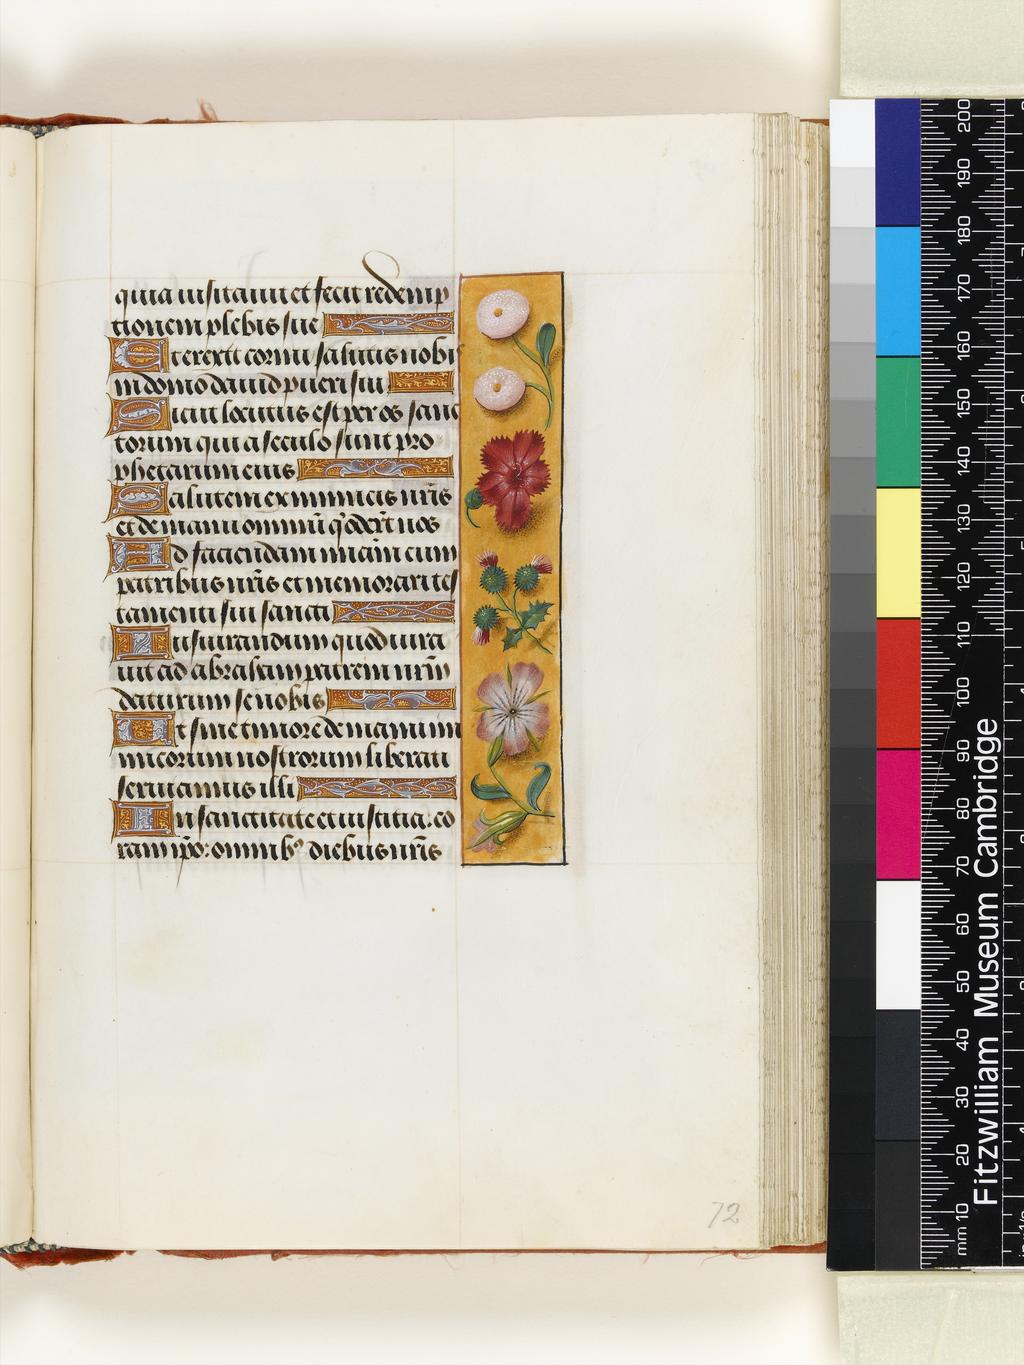 quia uisitauit et fecit redemp
tionem plebis sue
Et erexit cornu salutis nobis
in domo dauid pueri sui
Sicut locutus est per os sanc
torum qui a seculo sunt pro
phetarum eius
Salutem ex inimicis nr̃is
et de manu omniũ q̃ oder̃t nos
Ad faciendam miãm cum
patribus nr̃is et memorari tes
tamenti sui sancti
Iusiurandum quod iura
uit ad abraham patrem nr̃m
daturum se nobis
Et sine timore de manu ini
micorum nostrorum liberati
seruiamus illi
In sanctitate et iustitia: co
ram ip̃o: omnibꝰ diebus nr̃is
72
Fitzwilliam Museum Cambridge
mm 10 20 30 40 50 60 70 80 90 100 110 120 130 140 150 160 170 180 190 200